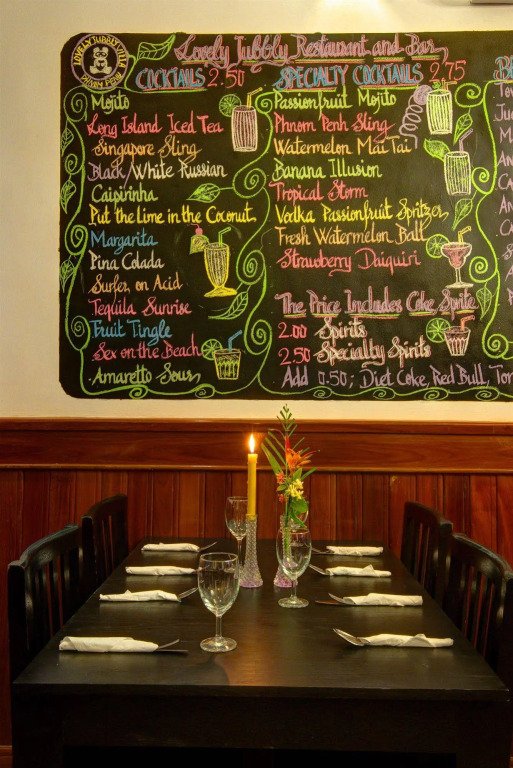 LOVELY JUBBLY VILLA
PHNOM PENH
Lovely Jubbly Restaurant and Bar
COCKTAILS 2.50
Mojito
Long Island Iced Tea
Singapore Sling
Black/White Russian
Caipirinha
Put the Lime in the Coconut
Margarita
Pina Colada
Surfer on Acid
Tequila Sunrise
Fruit Tingle
Sex on the Beach
Amaretto Sour
SPECIALTY COCKTAILS 2.75
Passionfruit Mojito
Phnom Penh Sling
Watermelon Mai Tai
Banana Illusion
Tropical Storm
Vodka Passionfruit Spritzer
Fresh Watermelon Ball
Strawberry Daiquiri
The Price Includes Coke, Sprite
2.00 Spirits
2.50 Specialty Spirits
Add 0.50; Diet Coke, Red Bull,